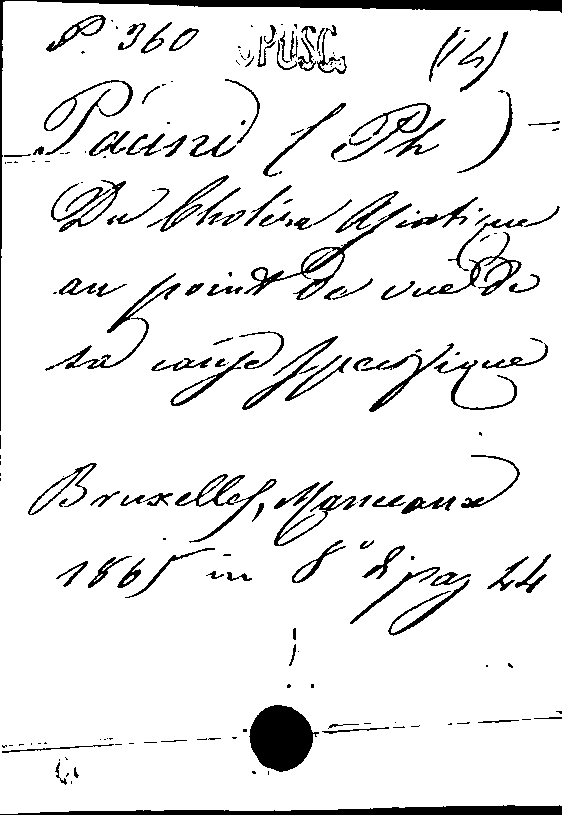 P. 360 OPUSC. (14)
Pacini (Ph)
Du Choléra Asiatique
au point de vue de
sa cause specifique
Bruxelles, Manceaux
1865 in 8° di pag 44